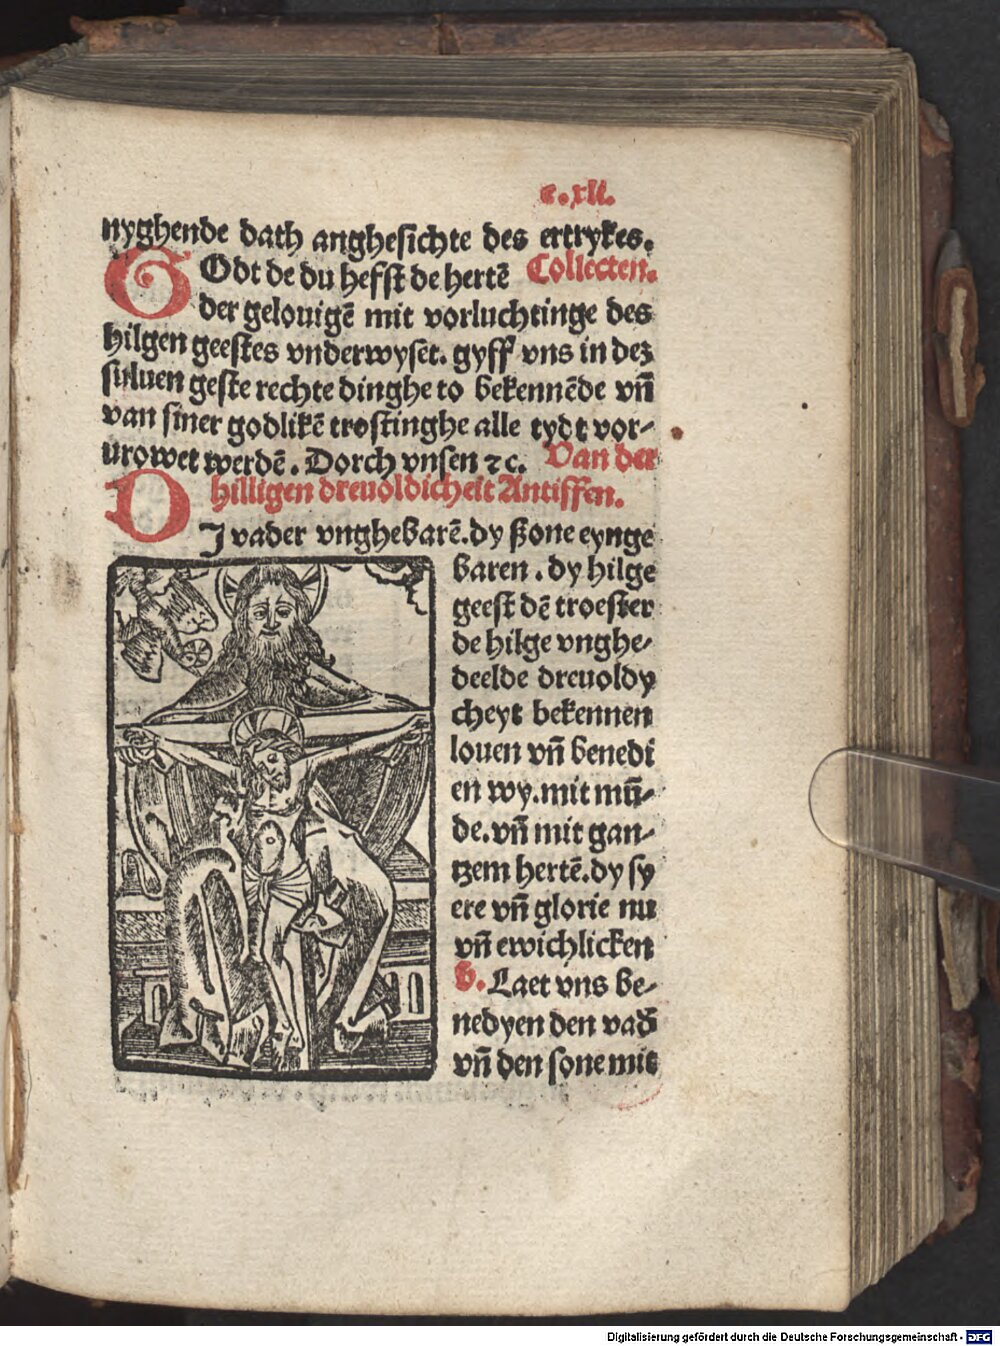 c.xli.
nyghende dath anghesichte des ertrykes.
GOdt de du hefst de hertē Collecten.
der gelouigē mit vorluchtinge des
hilgen geestes vnderwyset. gyff vns in dez
suluen geste rechte dinghe to bekennēde vñ
van siner godlikē trostinghe alle tydt vor⸗
urowet werdē. Dorch vnsen ⁊c. Van der
hilligen dreuoldicheit Antiffen.
DJ vader vnghebarē. dy ßone eynge
baren. dy hilge
geest dē troester
de hilge vnghe⸗
deelde dreuoldy
cheyt bekennen
louen vñ benedi
en wy. mit mū⸗
de. vñ mit gan⸗
tzem hertē. dy sy
ere vñ glorie nu
vñ ewichlicken
v. Laet vns be⸗
nedyen den vad̕
vñ den sone mit
Digitalisierung gefördert durch die Deutsche Forschungsgemeinschaft - DFG